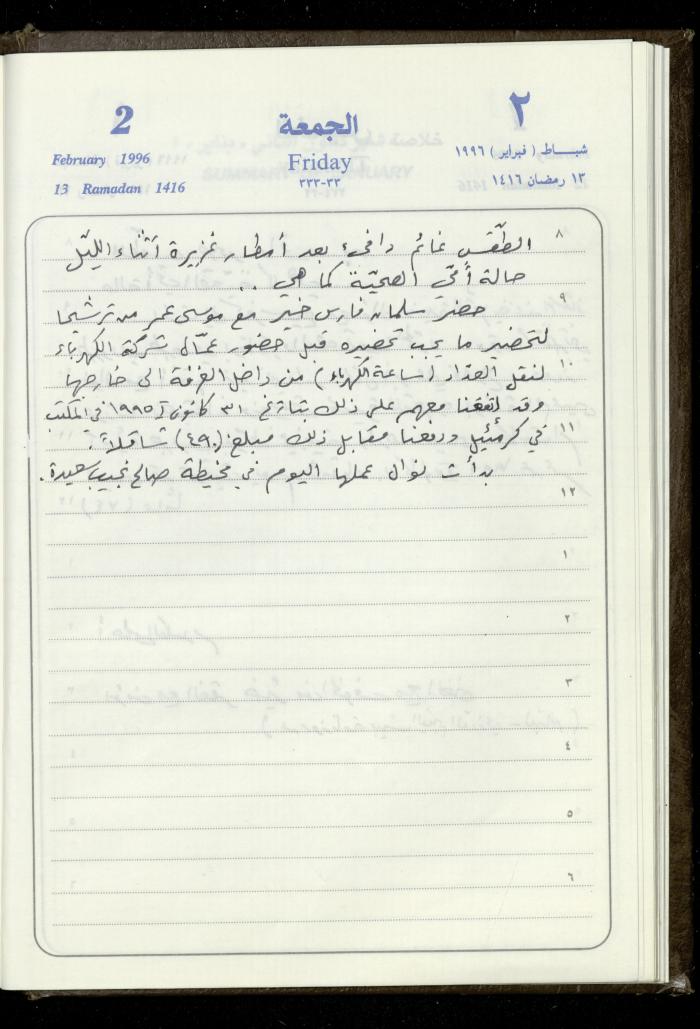 2
الجمعة
٢
February 1996
Friday
شباط ( فبراير ) ١٩٩٦
13 Ramadan 1416
٣٣-٣٣٣
١٣ رمضان ١٤١٦
٨
الطّقس غائم دافىء بعد أمطار غزيرة أثناء الليّل
حالة أمّي الصحيّة كما هي ..
٩
حضر سلمان فارس خير مع موسى عمر من ترشيحا
لتحضير ما يجب تحضيره قبل حضور عمّال شركة الكهرباء
١٠
لنقل العدّاد (ساعة الكهرباء) من داخل الغرفة الى خارجها
وقد اتفقنا معهم على ذلك بتاريخ ٣١ كانون ١٩٩٥ في المكتب
١١
في كرمئيل ودفعنا مقابل ذلك مبلغ (٤٩٠) شاقلاً.
بدأت نوال عملها اليوم في مخيطة صالح نجيب سعيدة.
١٢
١
٢
٣
٤
٥
٦